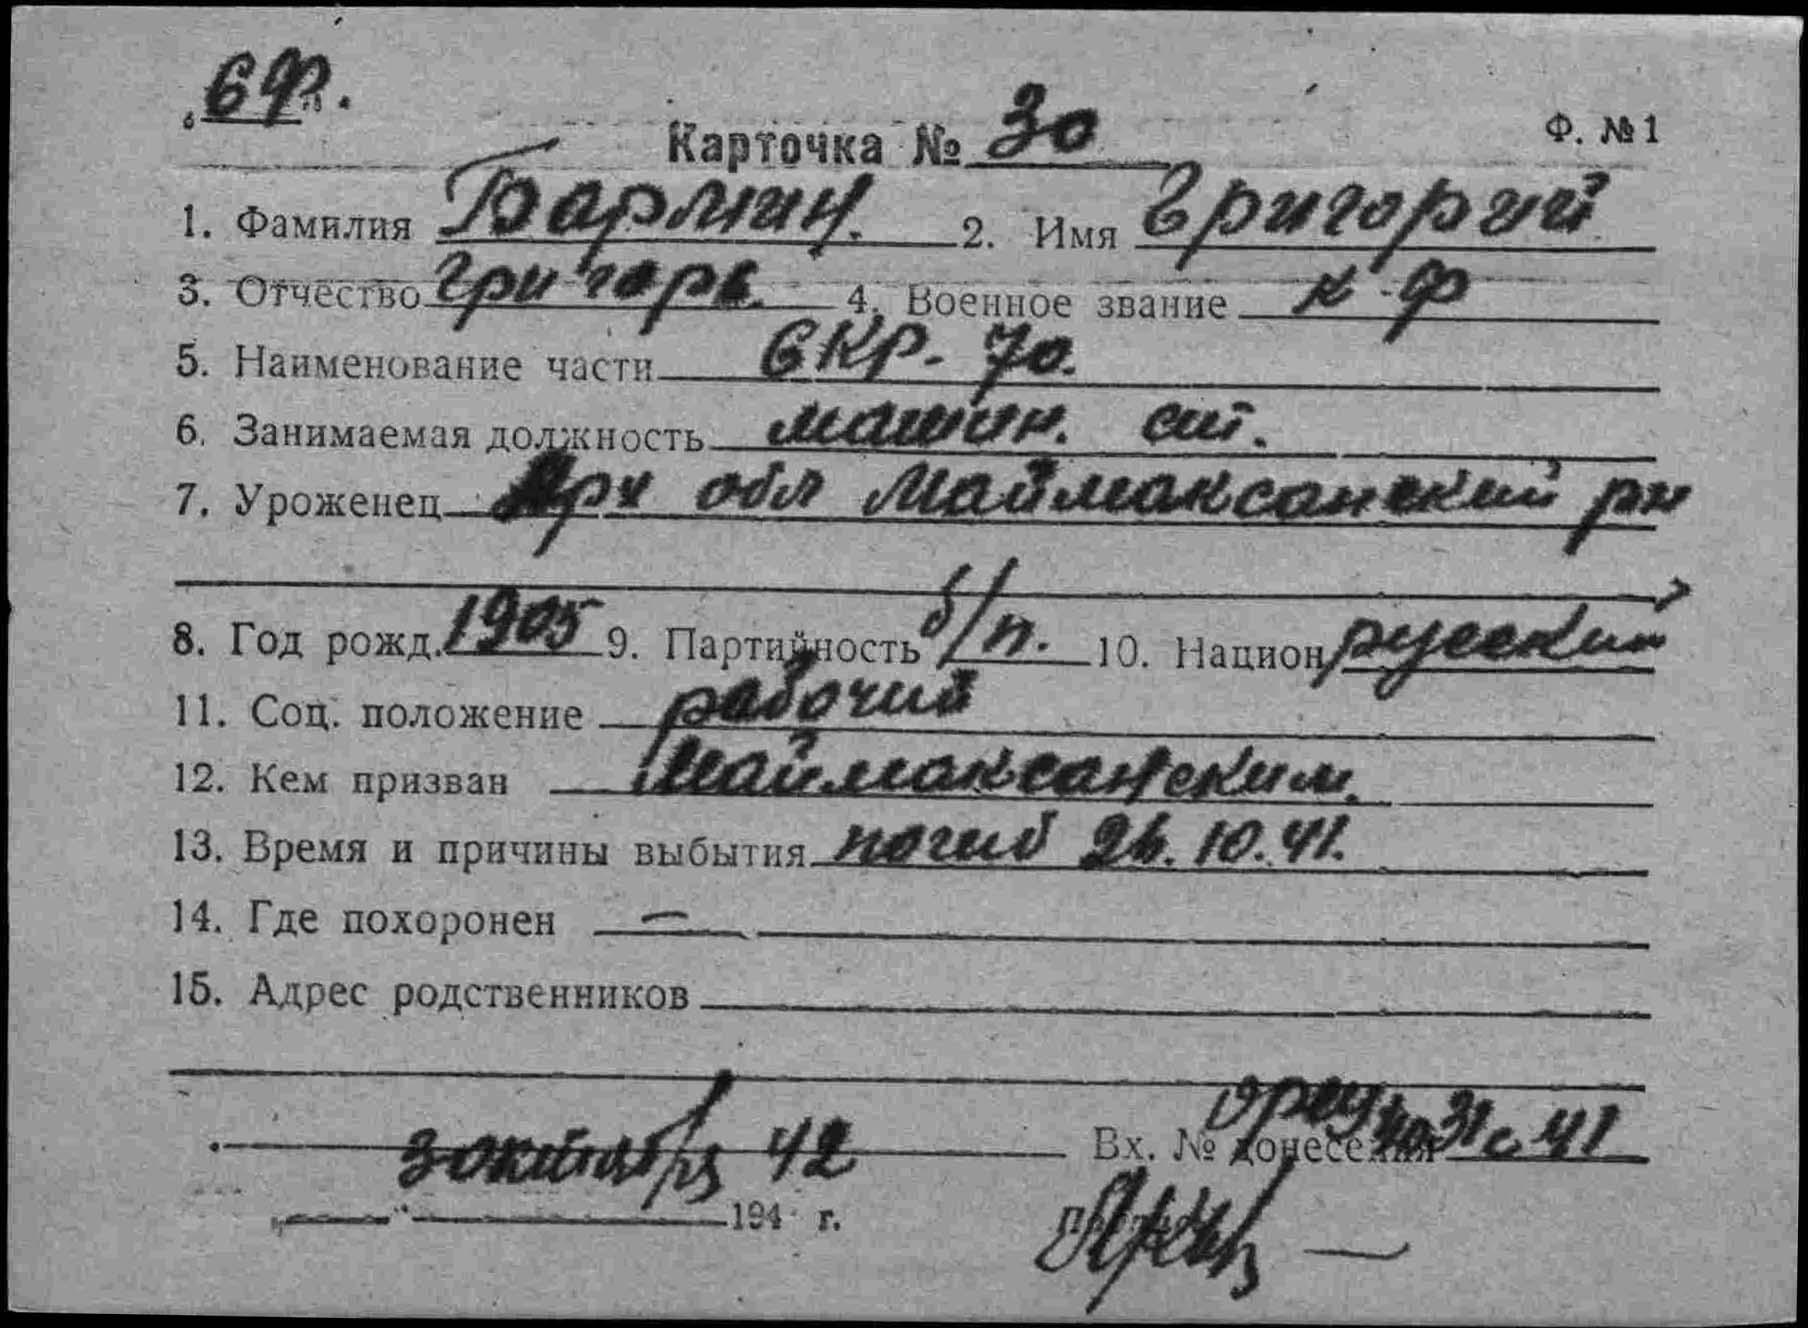 6 ф.
Карточка № 30 Ф. № 1
1. Фамилия Бармин. 2. Имя Григорий
3. Отчество Григорь. 4. Военное звание к-ф
5. Наименование части СКР-70.
6. Занимаемая должность машин. ст.
7. Уроженец Арх обл Маймаксанский рн
8. Год рожд. 1905 9. Партийность б/п. 10. Национ русский
11. Соц. положение рабочий
12. Кем призван Маймаксанским.
13. Время и причины выбытия погиб 26.10.41.
14. Где похоронен —
15. Адрес родственников
3 октября 42 Вх. № донесения 31с 41
194 г.